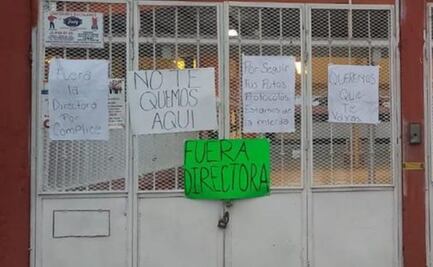 Fuera
la
Directora
Por
Complice
NO TE
QUEMOS
AQUI
Por Seguir
tus Putos
Protocolos
Estamos de
la mierda
QUEREMOS
QUE TE
Vayas
FUERA
DIRECTORA